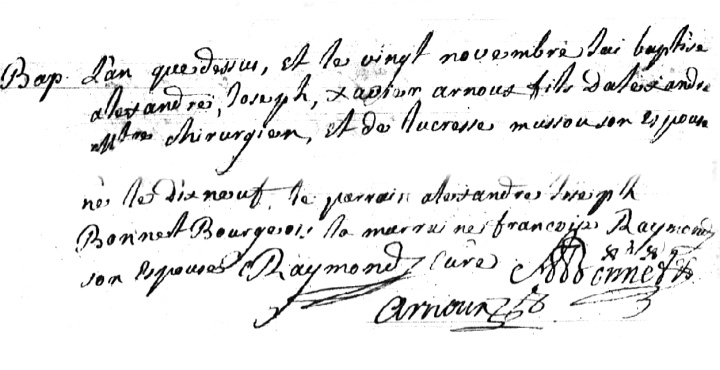 Bap. L'an que dessus, et le vingt novembre iai baptise
alexandre, Joseph, xavier arnoux fils dalexandre
Mtre chirurgien, et de lucresse mussou son espouse
né le dixneuf, le parrain alexandre Joseph
Bonnet Bourgeois la marraine francoise Raymond
son espouse Raymond curé Bonnet
arnoux